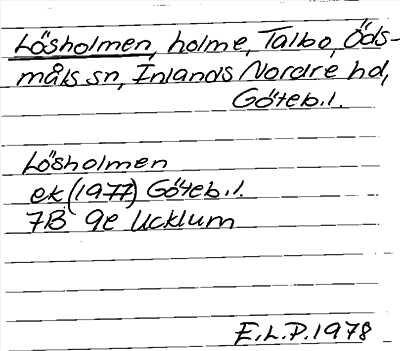 Lösholmen, holme, Talbo, Öds-
måls sn, Inlands Nordre hd,
Göteb.l.
Lösholmen
ek (1977) Göteb.l.
7B 9e Ucklum
E.L.P. 1978